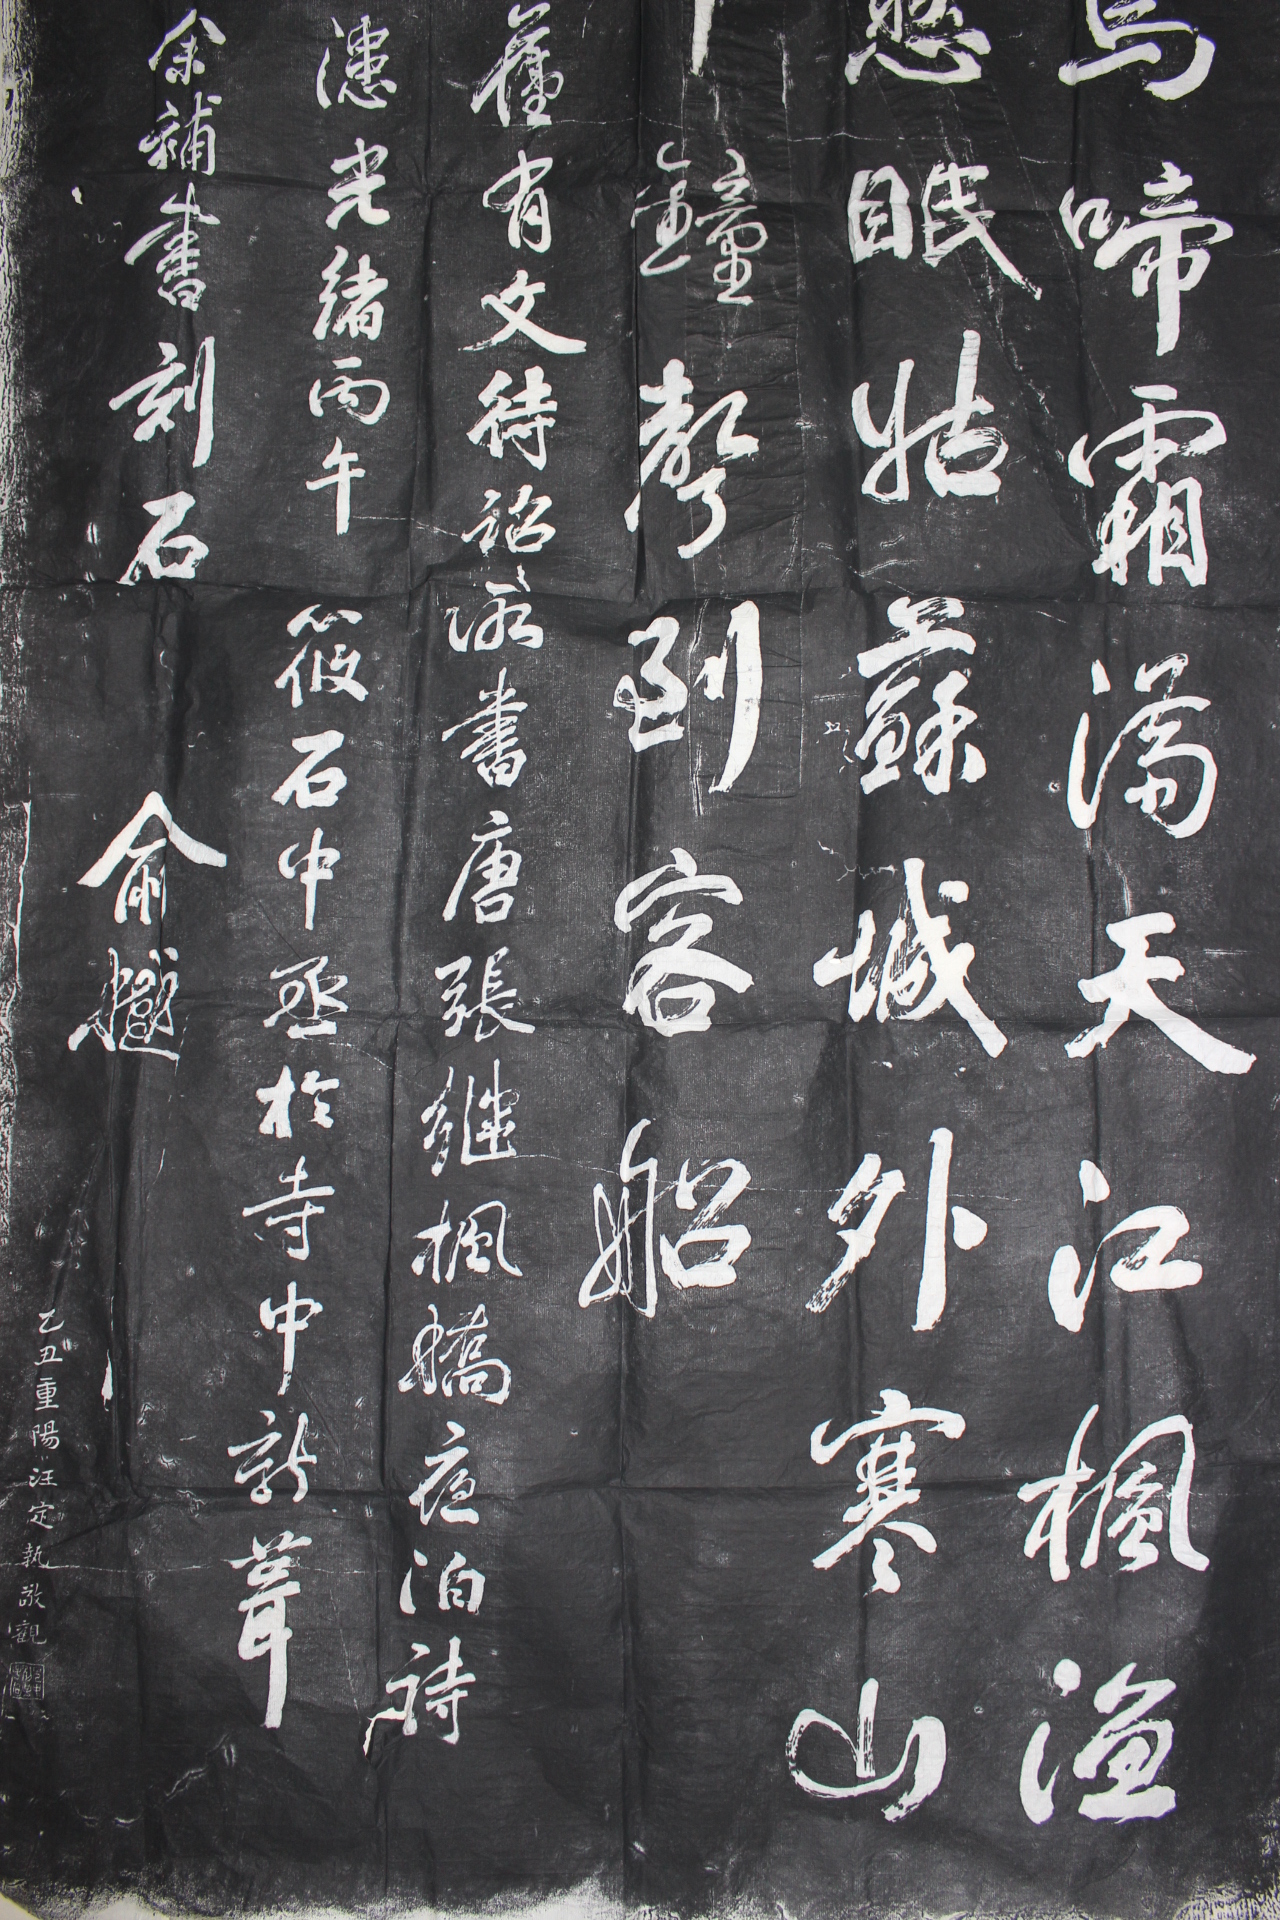 烏啼霜滿天江楓漁
愁眠姑蘇城外寒山
鐘聲到客船
舊有文待詔所書唐張繼楓橋夜泊詩
漶光緒丙午 筱石中丞於寺中新葺
余補書刻石 俞樾
乙丑重陽汪定執敬觀